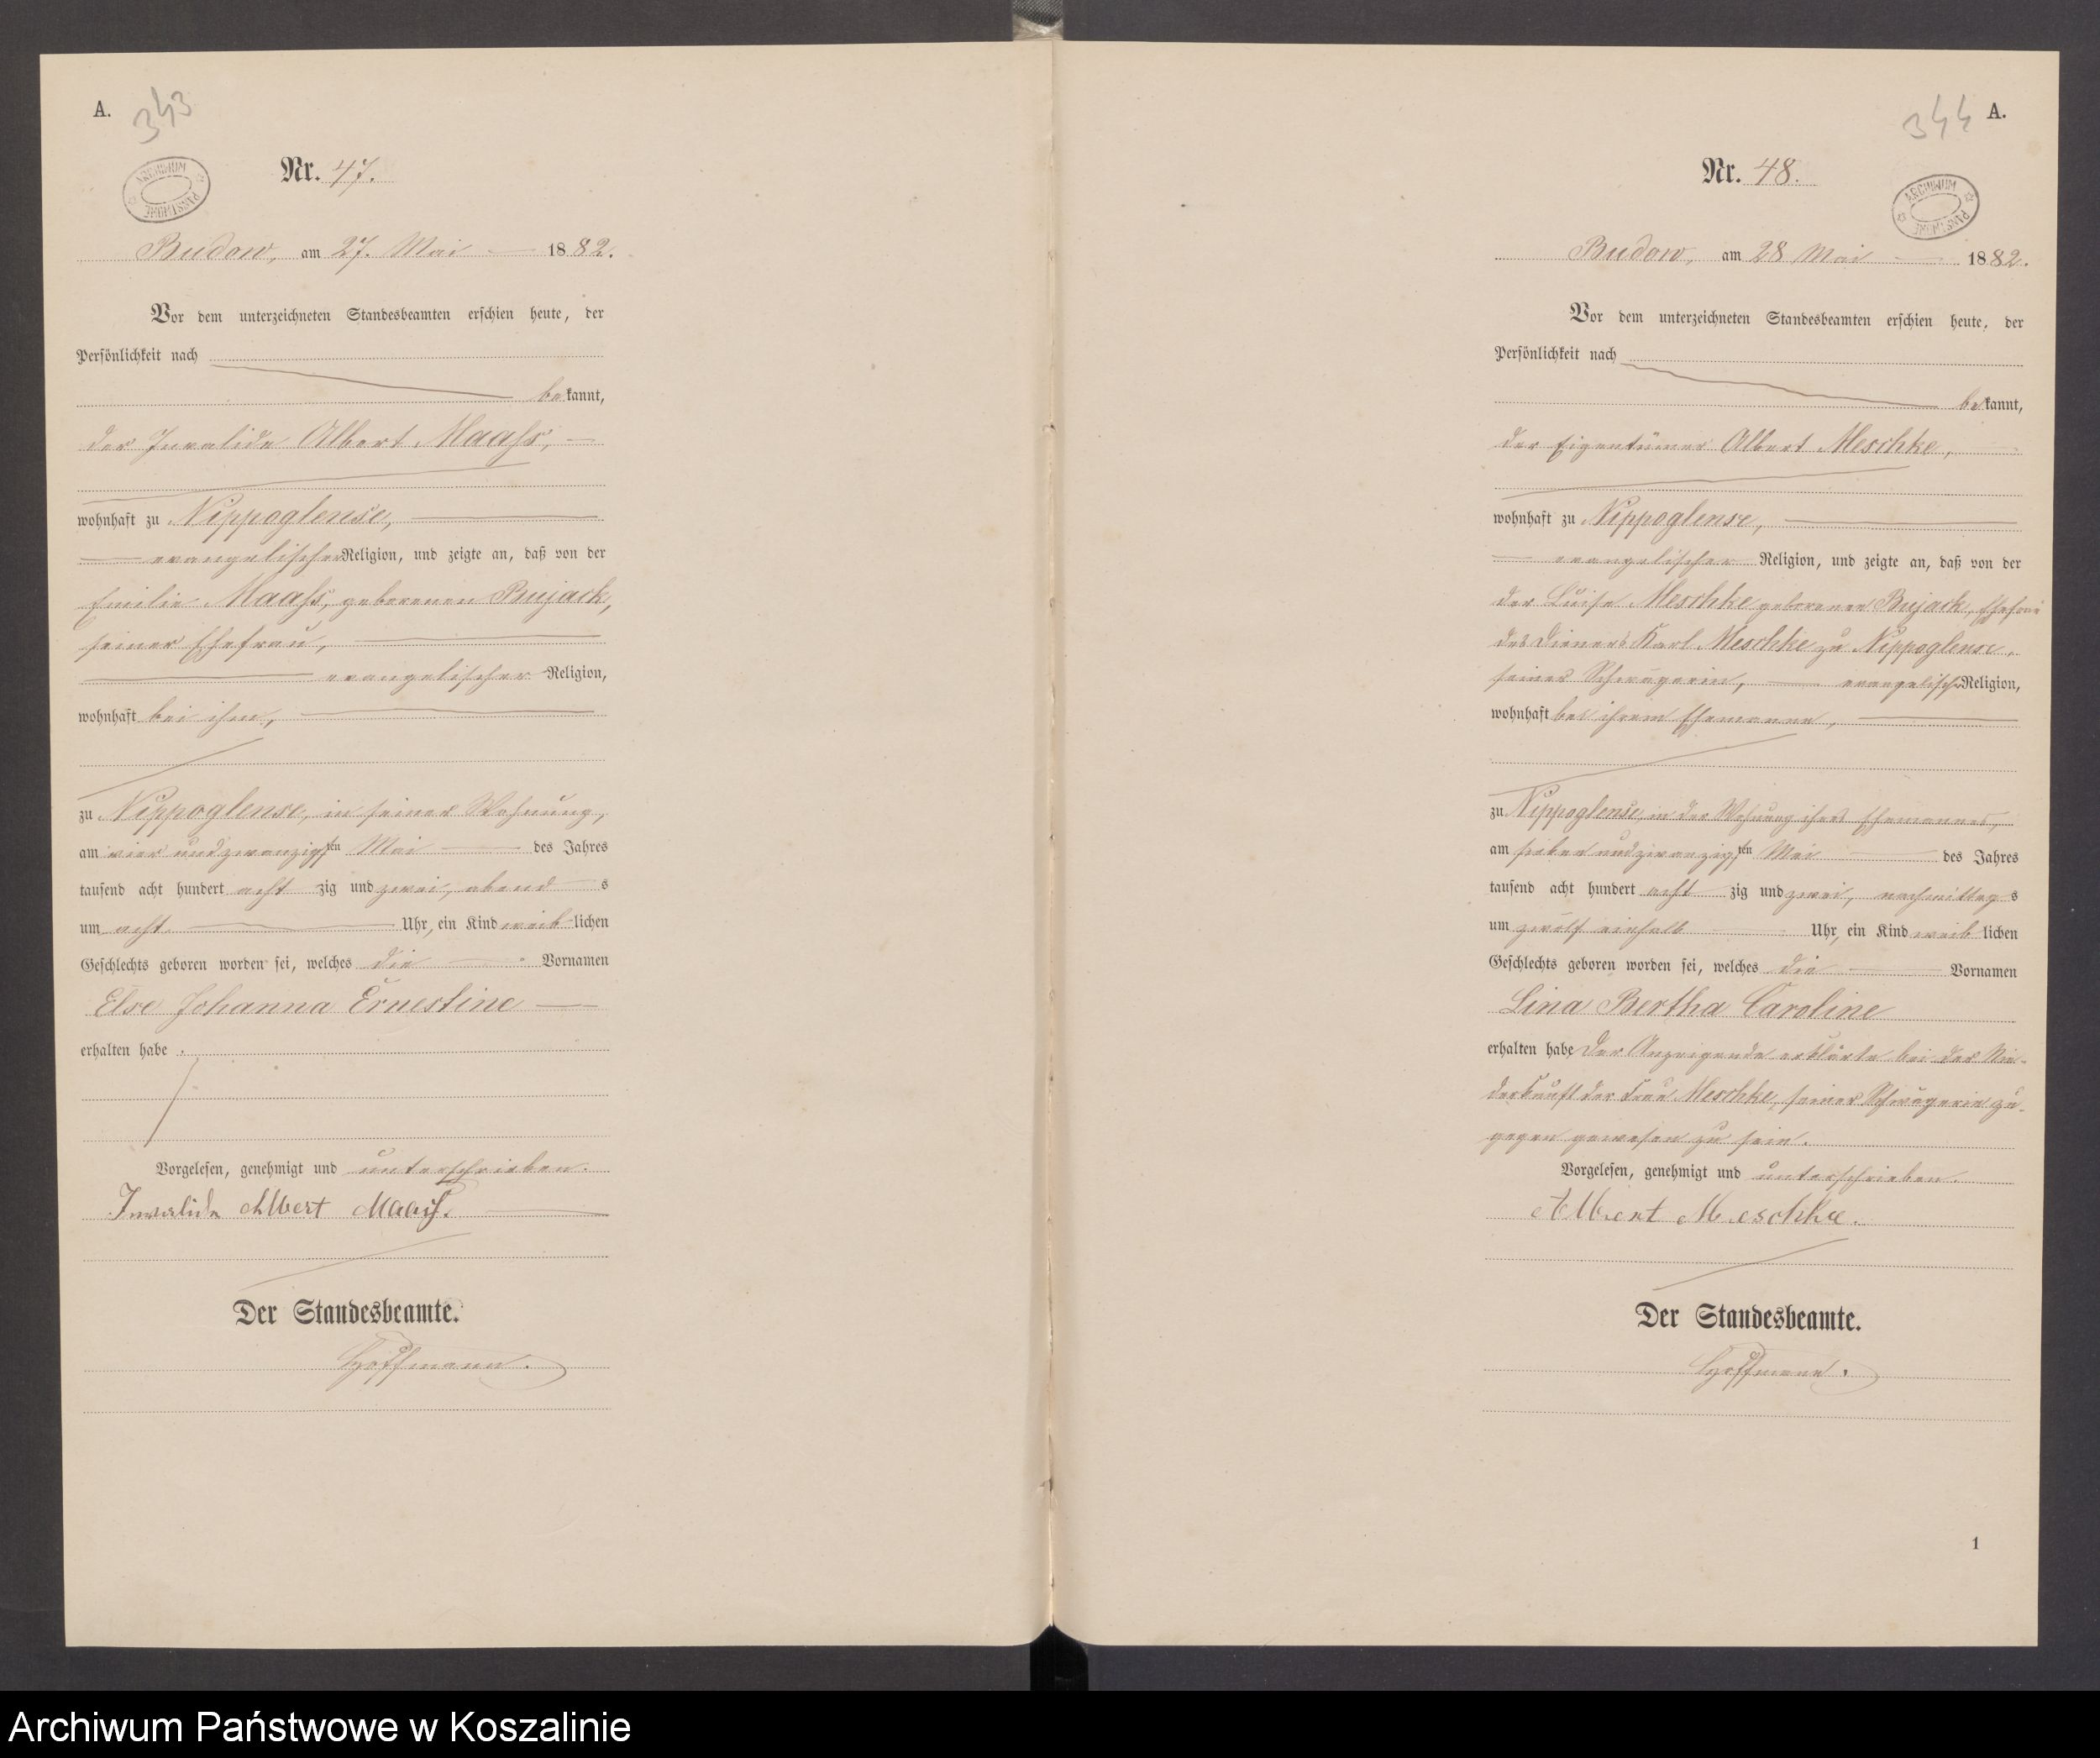 A.
343
ARCHIWUM PAŃSTWOWE
Nr. 47.
Budow, am 27. Mai 1882.
Vor dem unterzeichneten Standesbeamten erschien heute, der
Persönlichkeit nach
bekannt,
der Invalide Albert Maaß,
wohnhaft zu Nippoglense,
evangelischer Religion, und zeigte an, daß von der
Emilie Maaß, geborenen Bujack,
seiner Ehefrau,
evangelischer Religion,
wohnhaft bei ihm,
zu Nippoglense, in seiner Wohnung,
am vier und zwanzigsten Mai des Jahres
tausend acht hundert acht zig und zwei, abends
um acht Uhr, ein Kind weiblichen
Geschlechts geboren worden sei, welches die Vornamen
Else Johanna Ernestine
erhalten habe.
Vorgelesen, genehmigt und unterschrieben.
Invalide Albert Maaß.
Der Standesbeamte.
Hoffmann.
344
A.
ARCHIWUM PAŃSTWOWE
Nr. 48.
Budow, am 28 Mai 1882.
Vor dem unterzeichneten Standesbeamten erschien heute, der
Persönlichkeit nach
bekannt,
der Eigentümer Albert Meschke,
wohnhaft zu Nippoglense,
evangelischer Religion, und zeigte an, daß von der
der Luise Meschke geborenen Bujack, Ehefrau
des Dieners Karl Meschke zu Nippoglense,
seiner Schwägerin, evangelischer Religion,
wohnhaft bei ihrem Ehemanne,
zu Nippoglense, in der Wohnung ihres Ehemannes,
am sieben und zwanzigsten Mai des Jahres
tausend acht hundert acht zig und zwei, nachmittags
um zwölf einhalb Uhr, ein Kind weiblichen
Geschlechts geboren worden sei, welches die Vornamen
Lina Bertha Caroline
erhalten habe Der Anzeigende erklärte bei der Nie-
derkunft der Frau Meschke, seiner Schwägerin zu-
gegen gewesen zu sein.
Vorgelesen, genehmigt und unterschrieben.
Albert Meschke.
Der Standesbeamte.
Hoffmann.
1
Archiwum Państwowe w Koszalinie